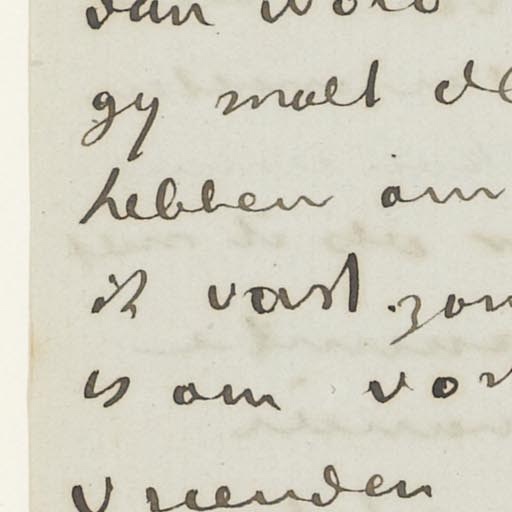 dan word
gy moet de
hebben om
ik vast zon
is om vor
vrienden